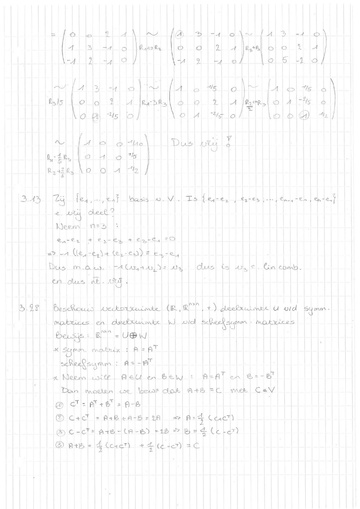 = ( 0 0 2 1 ; 1 3 -1 0 ; -1 2 -1 0 ) ~ R1↔R2 ( 1 3 -1 0 ; 0 0 2 1 ; -1 2 -1 0 ) ~ ( 1 3 -1 0 ; 0 0 2 1 ; 0 5 -2 0 )
~ R3/5 ( 1 3 -1 0 ; 0 0 2 1 ) ~ R2↔R3 ( 1 0 1/5 0 ; 0 0 2 1 ) ~ ( 1 0 1/5 0 ; 0 1 -2/5 0 ; 0 0 1 1/2 )
~ ( 1 0 0 ; 0 1 0 1/5 ; 0 0 1 1/2 ) Dus vrij
3.13 Zij {e1, ..., en} basis v. V. Is {e1-e2, e2-e3, ..., en-1-en, en-e1}
e vrij deel?
Neem n=3 :
e1-e2 + e2-e3 + e3-e1 = 0
⇔ -1 ((e1-e2)+(e2-e3)) = e3-e1
Dus m.a.w. -1(v1+v2) = v3 dus is v3 = lin comb.
en dus nt. vrij.
3.28 Beschouw vectorruimte (ℝ, ℝⁿˣⁿ, +) deelruimte U v/d symm.
matrices en deelruimte W v/d scheefsymm. matrices
Bewijs: ℝⁿˣⁿ = U⊕W
* symm matrix : A = Aᵀ
scheefsymm : A = -Aᵀ
* Neem will. A∈U en B∈W : A = Aᵀ en B = -Bᵀ
Dan moeten we bewijzen dat A+B = C met C∈V
① Cᵀ = Aᵀ + Bᵀ = A-B
② C+Cᵀ = A+B+A-B = 2A ⇔ A = 1/2 (C+Cᵀ)
③ C-Cᵀ = A+B-(A-B) = 2B ⇔ B = 1/2 (C-Cᵀ)
④ A+B = 1/2 (C+Cᵀ) + 1/2 (C-Cᵀ) = C